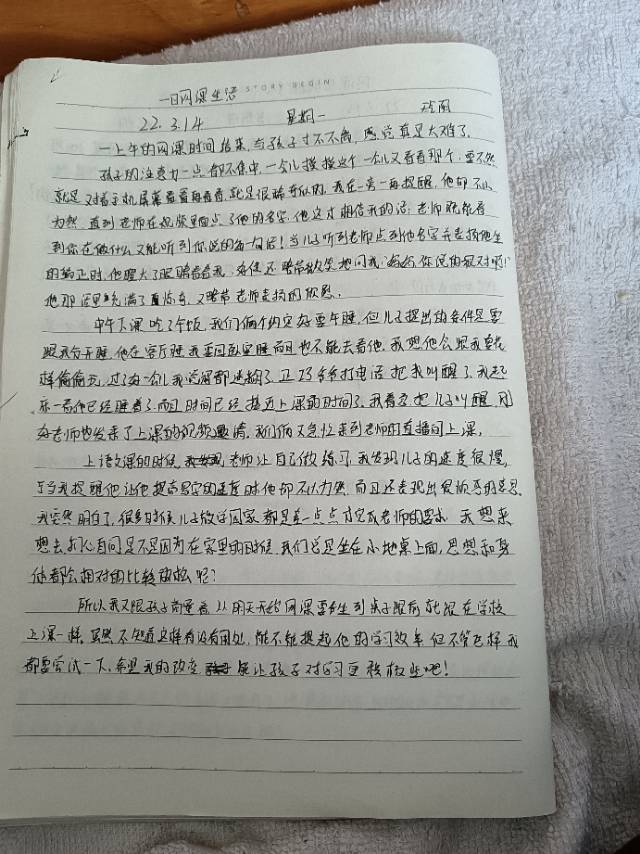 一日网课生活 STORY BEGIN
22.3.14 星期一
一上午的网课时间结束,与孩子寸不离,感觉真是太难了。
孩子的注意力一点都不集中,一会儿摸摸这个一会儿又看看那个;要不然
就是对着手机屏幕看看,就是很好奇似的,我在一旁一再提醒,他却不以
为然,直到老师在视频里面点了他的名字,他这才相信我的话;老师既能看
到你在做什么又能听到你说的每一句话!当儿子听到老师点到他名字并表扬他坐
的端正时,他瞪大了眼睛看看我,妈妈你说的很对啊!
他那里充满了又带老师表扬的欣慰。
中午下课吃了午饭,我们俩个约定好要午睡,但儿子提出的条件是要
跟我分开睡,他在客厅睡我要回卧室睡而且也不能去看他。我想他会跟我
偷偷玩,过了为一会儿我觉都迷糊了,正巧爷爷打电话把我叫醒了,我起
来一看他已经睡着了,而且时间已经接近上课的时间了,我着急把儿子叫醒,刚
好老师也发来了上课的视频邀请,我们俩又急忙来到老师的直播间上课。
上语文课的时候,老师让自己做练习,我发现儿子的速度很慢,
当我提醒他让他提高写字的速度时他却不以为然,而且还表现出很烦的意思,
我突然明白了,很多时候儿子做作回家都是差一点点才完成老师的要求,我想来
想去扪心自问是不是因为在家里的时候,我们总是坐在小地桌上面,思想和身
体都会相对的比较放松呢?
所以我又跟孩子商量着,从明天开始网课要坐到桌子跟前就跟在学校
上课一样,虽然不知道这样有没有用处,能不能提起他的学习效率,但不管怎样我
都要尝试一下,希望我的改变能让孩子对学习更积极些吧!